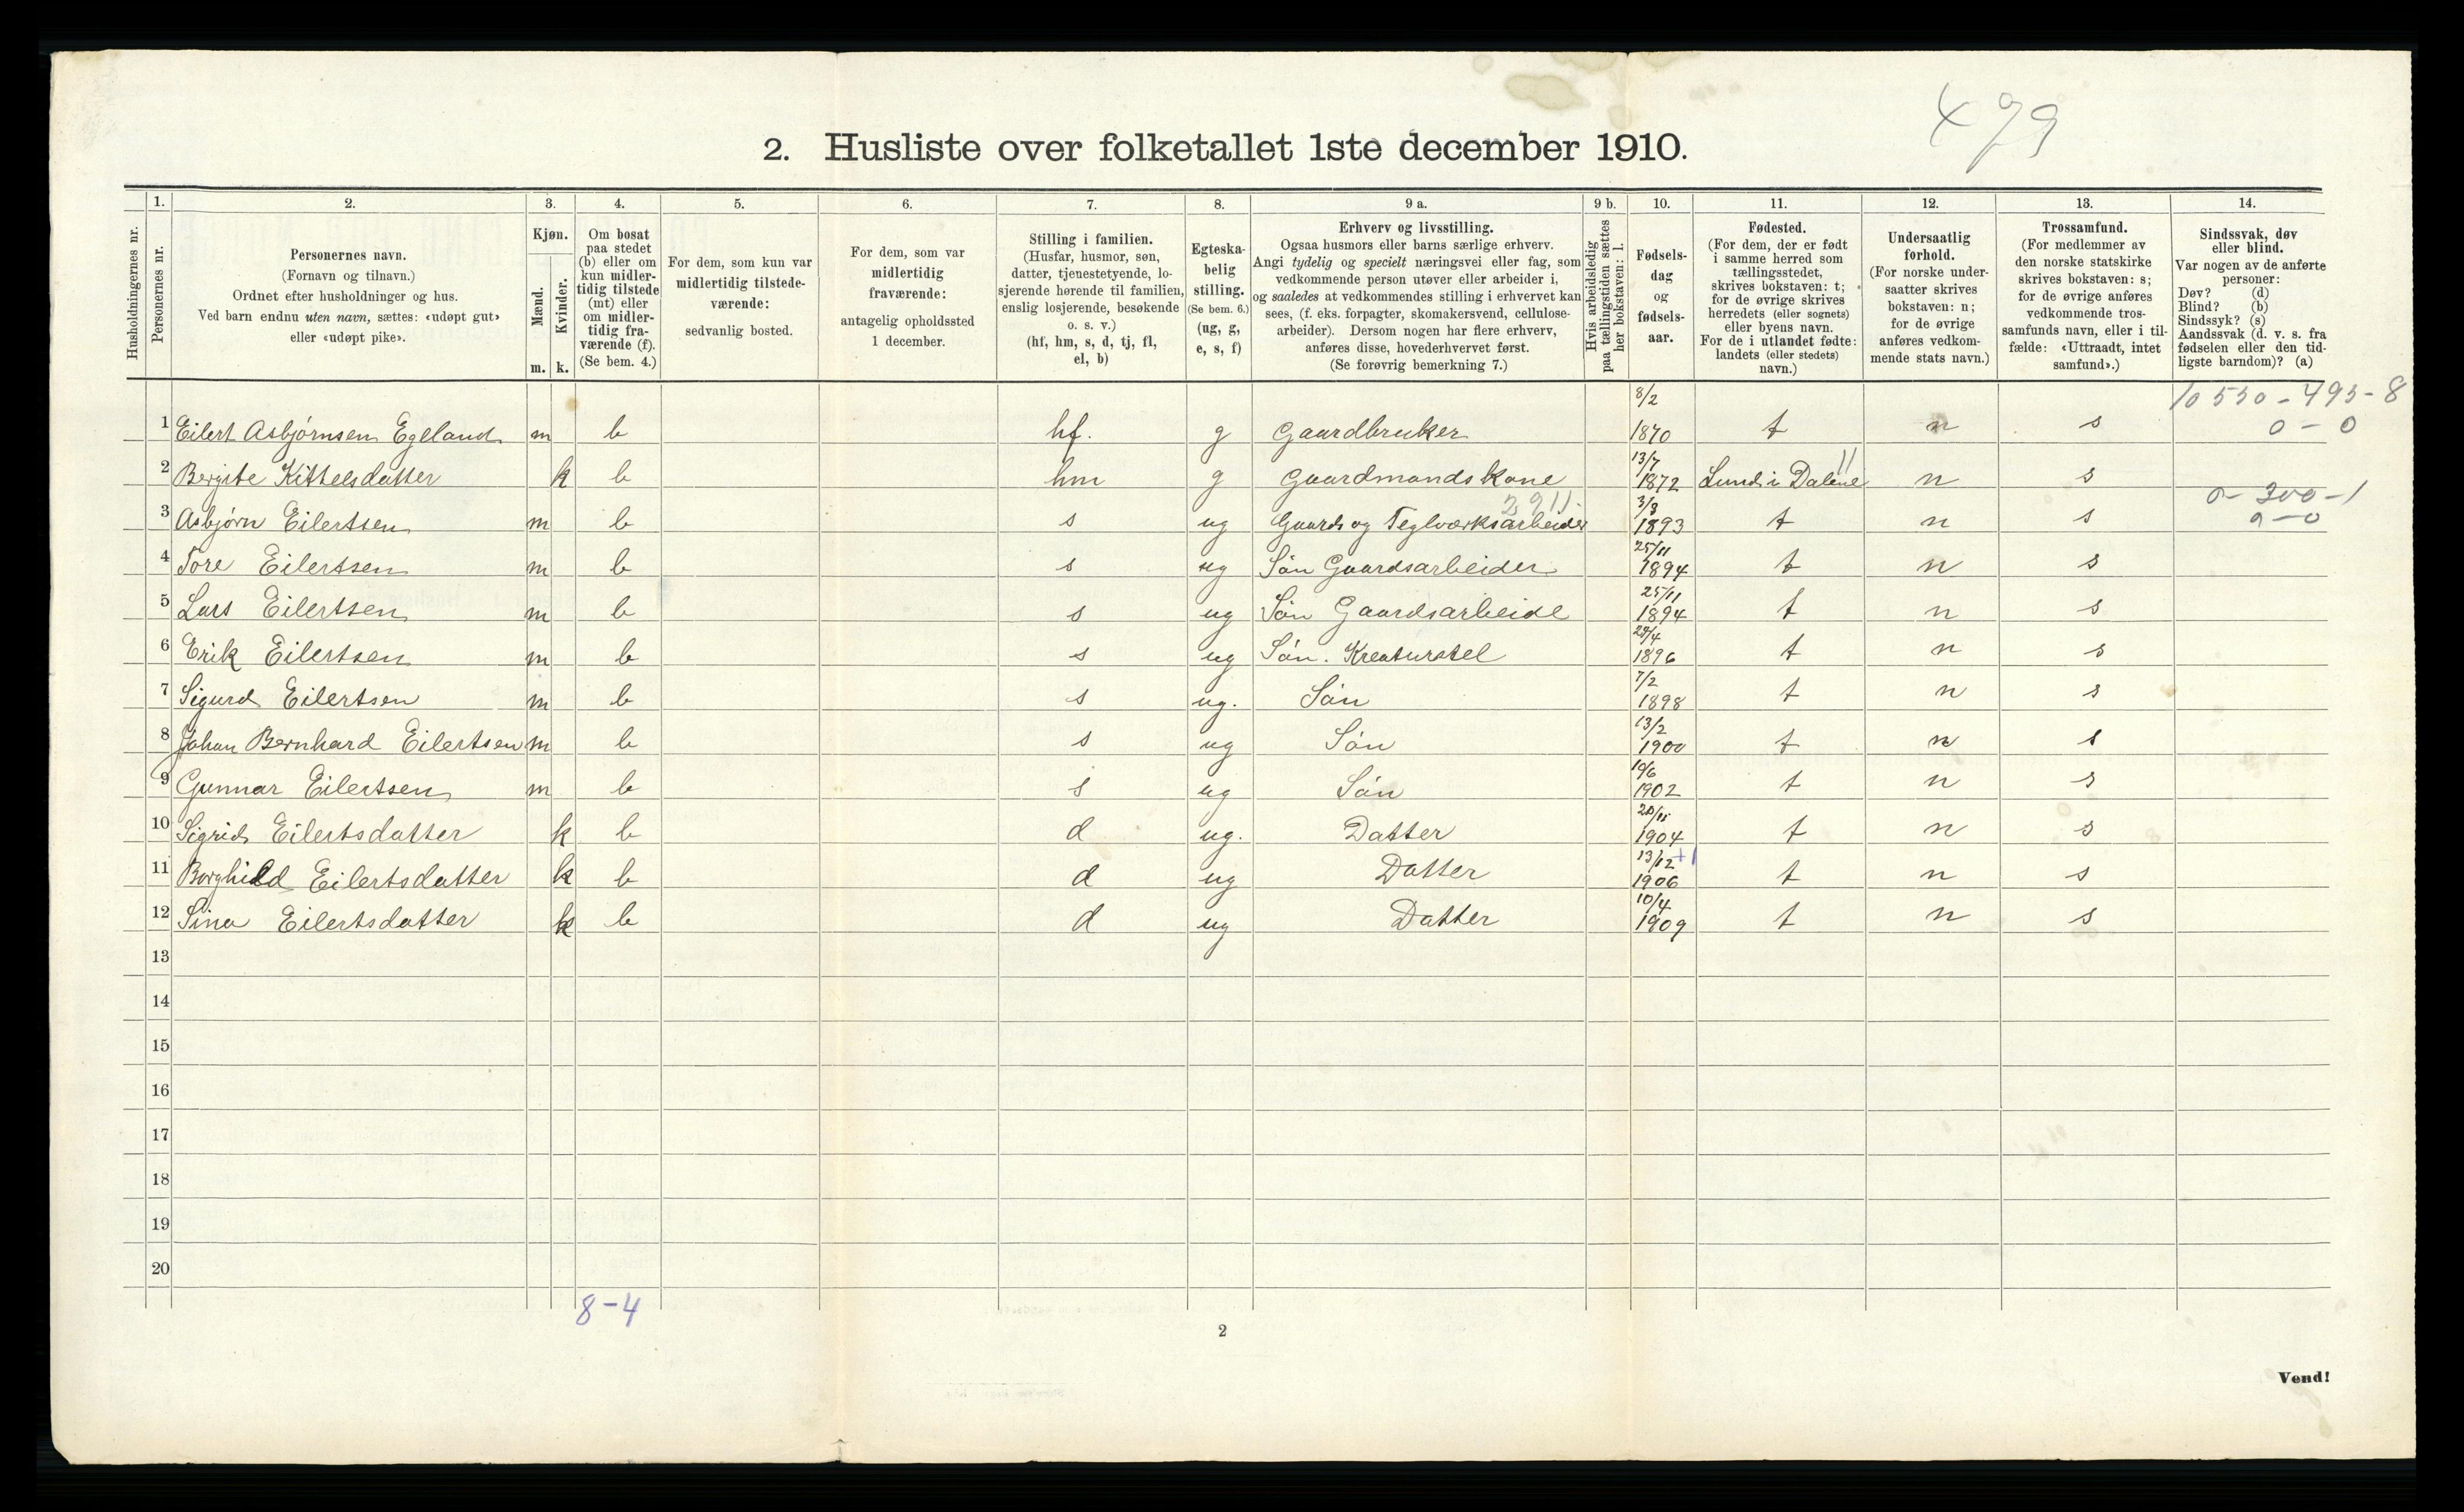 479
2. Husliste over folketallet 1ste december 1910.
Husholdningernes nr.
1.
Personernes nr.
2.
Personernes navn.
(Fornavn og tilnavn.)
Ordnet efter husholdninger og hus.
Ved barn endnu uten navn, sættes: «udøpt gut»
eller «udøpt pike».
3.
Kjøn.
Mænd.
Kvinder.
m. k.
4.
Om bosat
paa stedet
(b) eller om
kun midler-
tidig tilstede
(mt) eller
om midler-
tidig fra-
værende (f).
(Se bem. 4.)
5.
For dem, som kun var
midlertidig tilstede-
værende:
sedvanlig bosted.
6.
For dem, som var
midlertidig
fraværende:
antagelig opholdssted
1 december.
7.
Stilling i familien.
(Husfar, husmor, søn,
datter, tjenestetyende, lo-
sjerende hørende til familien,
enslig losjerende, besøkende
o. s. v.)
(hf, hm, s, d, tj, fl,
el, b)
8.
Egteska-
belig
stilling.
(Se bem. 6.)
(ug, g,
e, s, f)
9 a.
Erhverv og livsstilling.
Ogsaa husmors eller barns særlige erhverv.
Angi tydelig og specielt næringsvei eller fag, som
vedkommende person utøver eller arbeider i,
og saaledes at vedkommendes stilling i erhvervet kan
sees, (f. eks. forpagter, skomakersvend, cellulose-
arbeider). Dersom nogen har flere erhverv,
anføres disse, hovederhvervet først.
(Se forøvrig bemerkning 7.)
9 b.
Hvis arbeidsledig
paa tællingstiden sættes
her bokstaven: l.
10.
Fødsels-
dag
og
fødsels-
aar.
11.
Fødested.
(For dem, der er født
i samme herred som
tællingsstedet,
skrives bokstaven: t;
for de øvrige skrives
herredets (eller sognets)
eller byens navn.
For de i utlandet fødte:
landets (eller stedets)
navn.)
12.
Undersaatlig
forhold.
(For norske under-
saatter skrives
bokstaven: n;
for de øvrige
anføres vedkom-
mende stats navn.)
13.
Trossamfund.
(For medlemmer av
den norske statskirke
skrives bokstaven: s;
for de øvrige anføres
vedkommende tros-
samfunds navn, eller i til-
fælde: «Uttraadt, intet
samfund».)
14.
Sindssvak, døv
eller blind.
Var nogen av de anførte
personer:
Døv? (d)
Blind? (b)
Sindssyk? (s)
Aandssvak (d. v. s. fra
fødselen eller den tid-
ligste barndom)? (a)
10 530 - 495 - 8
0 - 0
1 Eilert Asbjørnsen Egeland m b hf. g Gaardbruker 8/2 1870 t n s
2 Bergite Kittelsdatter k b hm g Gaardmandskone 13/7 1872 Lund i Dalene 11 n s
0 - 300 - 1
0 - 0
3 Asbjørn Eilertsen m b s ug Gaards og Teglværksarbeider 3/8 1893 t n s
4 Tore Eilertsen m b s ug Søn Gaardsarbeider 25/11 1894 t n s
5 Lars Eilertsen m b s ug Søn Gaardsarbeide 25/11 1894 t n s
6 Erik Eilertsen m b s ug Søn. Kreaturstel 1896 t n s
7 Sigurd Eilertsen m b s ug. Søn 7/2 1898 t n s
8 Johan Bernhard Eilertsen m b s ug Søn 13/2 1900 t n s
9 Gunnar Eilertsen m b s ug Søn 10/6 1902 t n s
10 Sigrid Eilertsdatter k b d ug. Datter 20/11 1904 t n s
11 Borghild Eilertsdatter k b d ug Datter 13/12 +1 1906 t n s
12 Sina Eilertsdatter k b d ug Datter 10/4 1909 t n s
13
14
15
16
17
18
19
20
8-4
2
Vend!